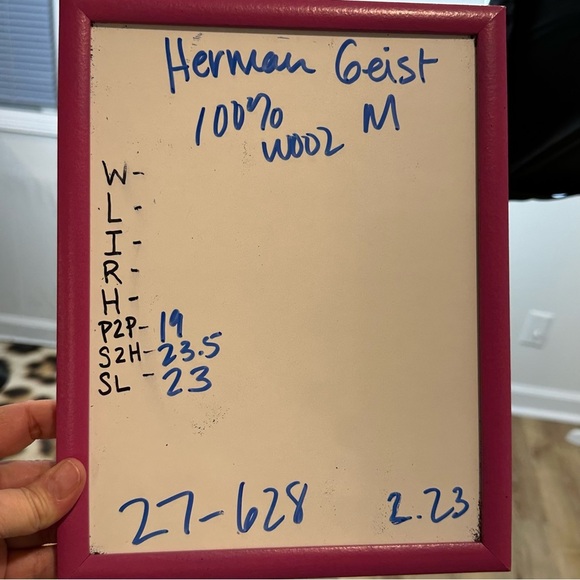 Herman Geist
100% M
wool
W-
L-
I-
R-
H-
P2P-19
S2H-23.5
SL-23
27-628 2.23